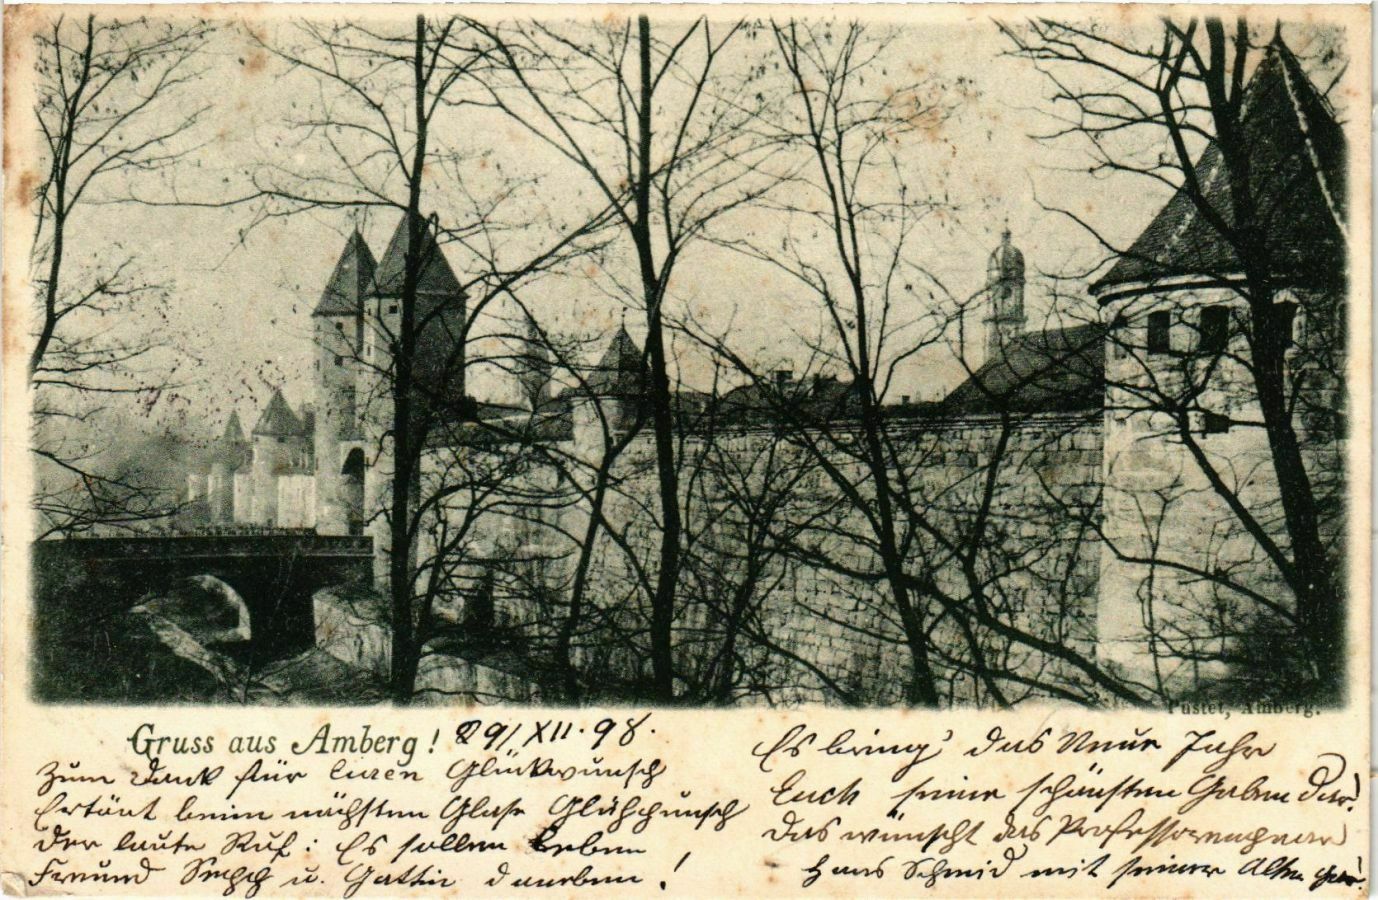 Pustet, Amberg.
Gruss aus Amberg! 29/XII. 98.
Zum Dank für Euren Glückwunsch
Ertönt beim nächsten Glase Glühpunsch
Der laute Ruf: Es sollen leben
Freund Sepp u. Gattin daneben!
Es bring' das Neue Jahr
Euch seine schönsten Gaben dar!
Das wünscht das Professorenpaar
Hans Schmid mit seiner Alten